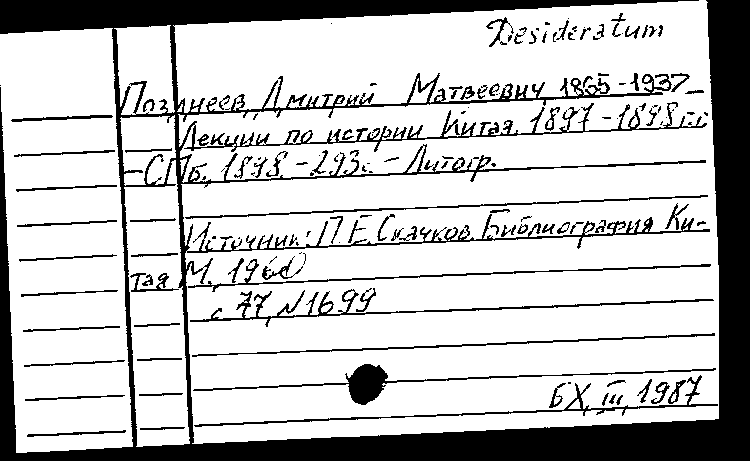 Desideratum
Позднеев, Дмитрий Матвеевич, 1865-1937
Лекции по истории Китая. 1897-1898 гг.
-СПб., 1898. -293с. - Литогр.
Источник: П.Е. Скачков. Библиография Ки-
тая М., 1960
с 77, №1699
БХ, III, 1987